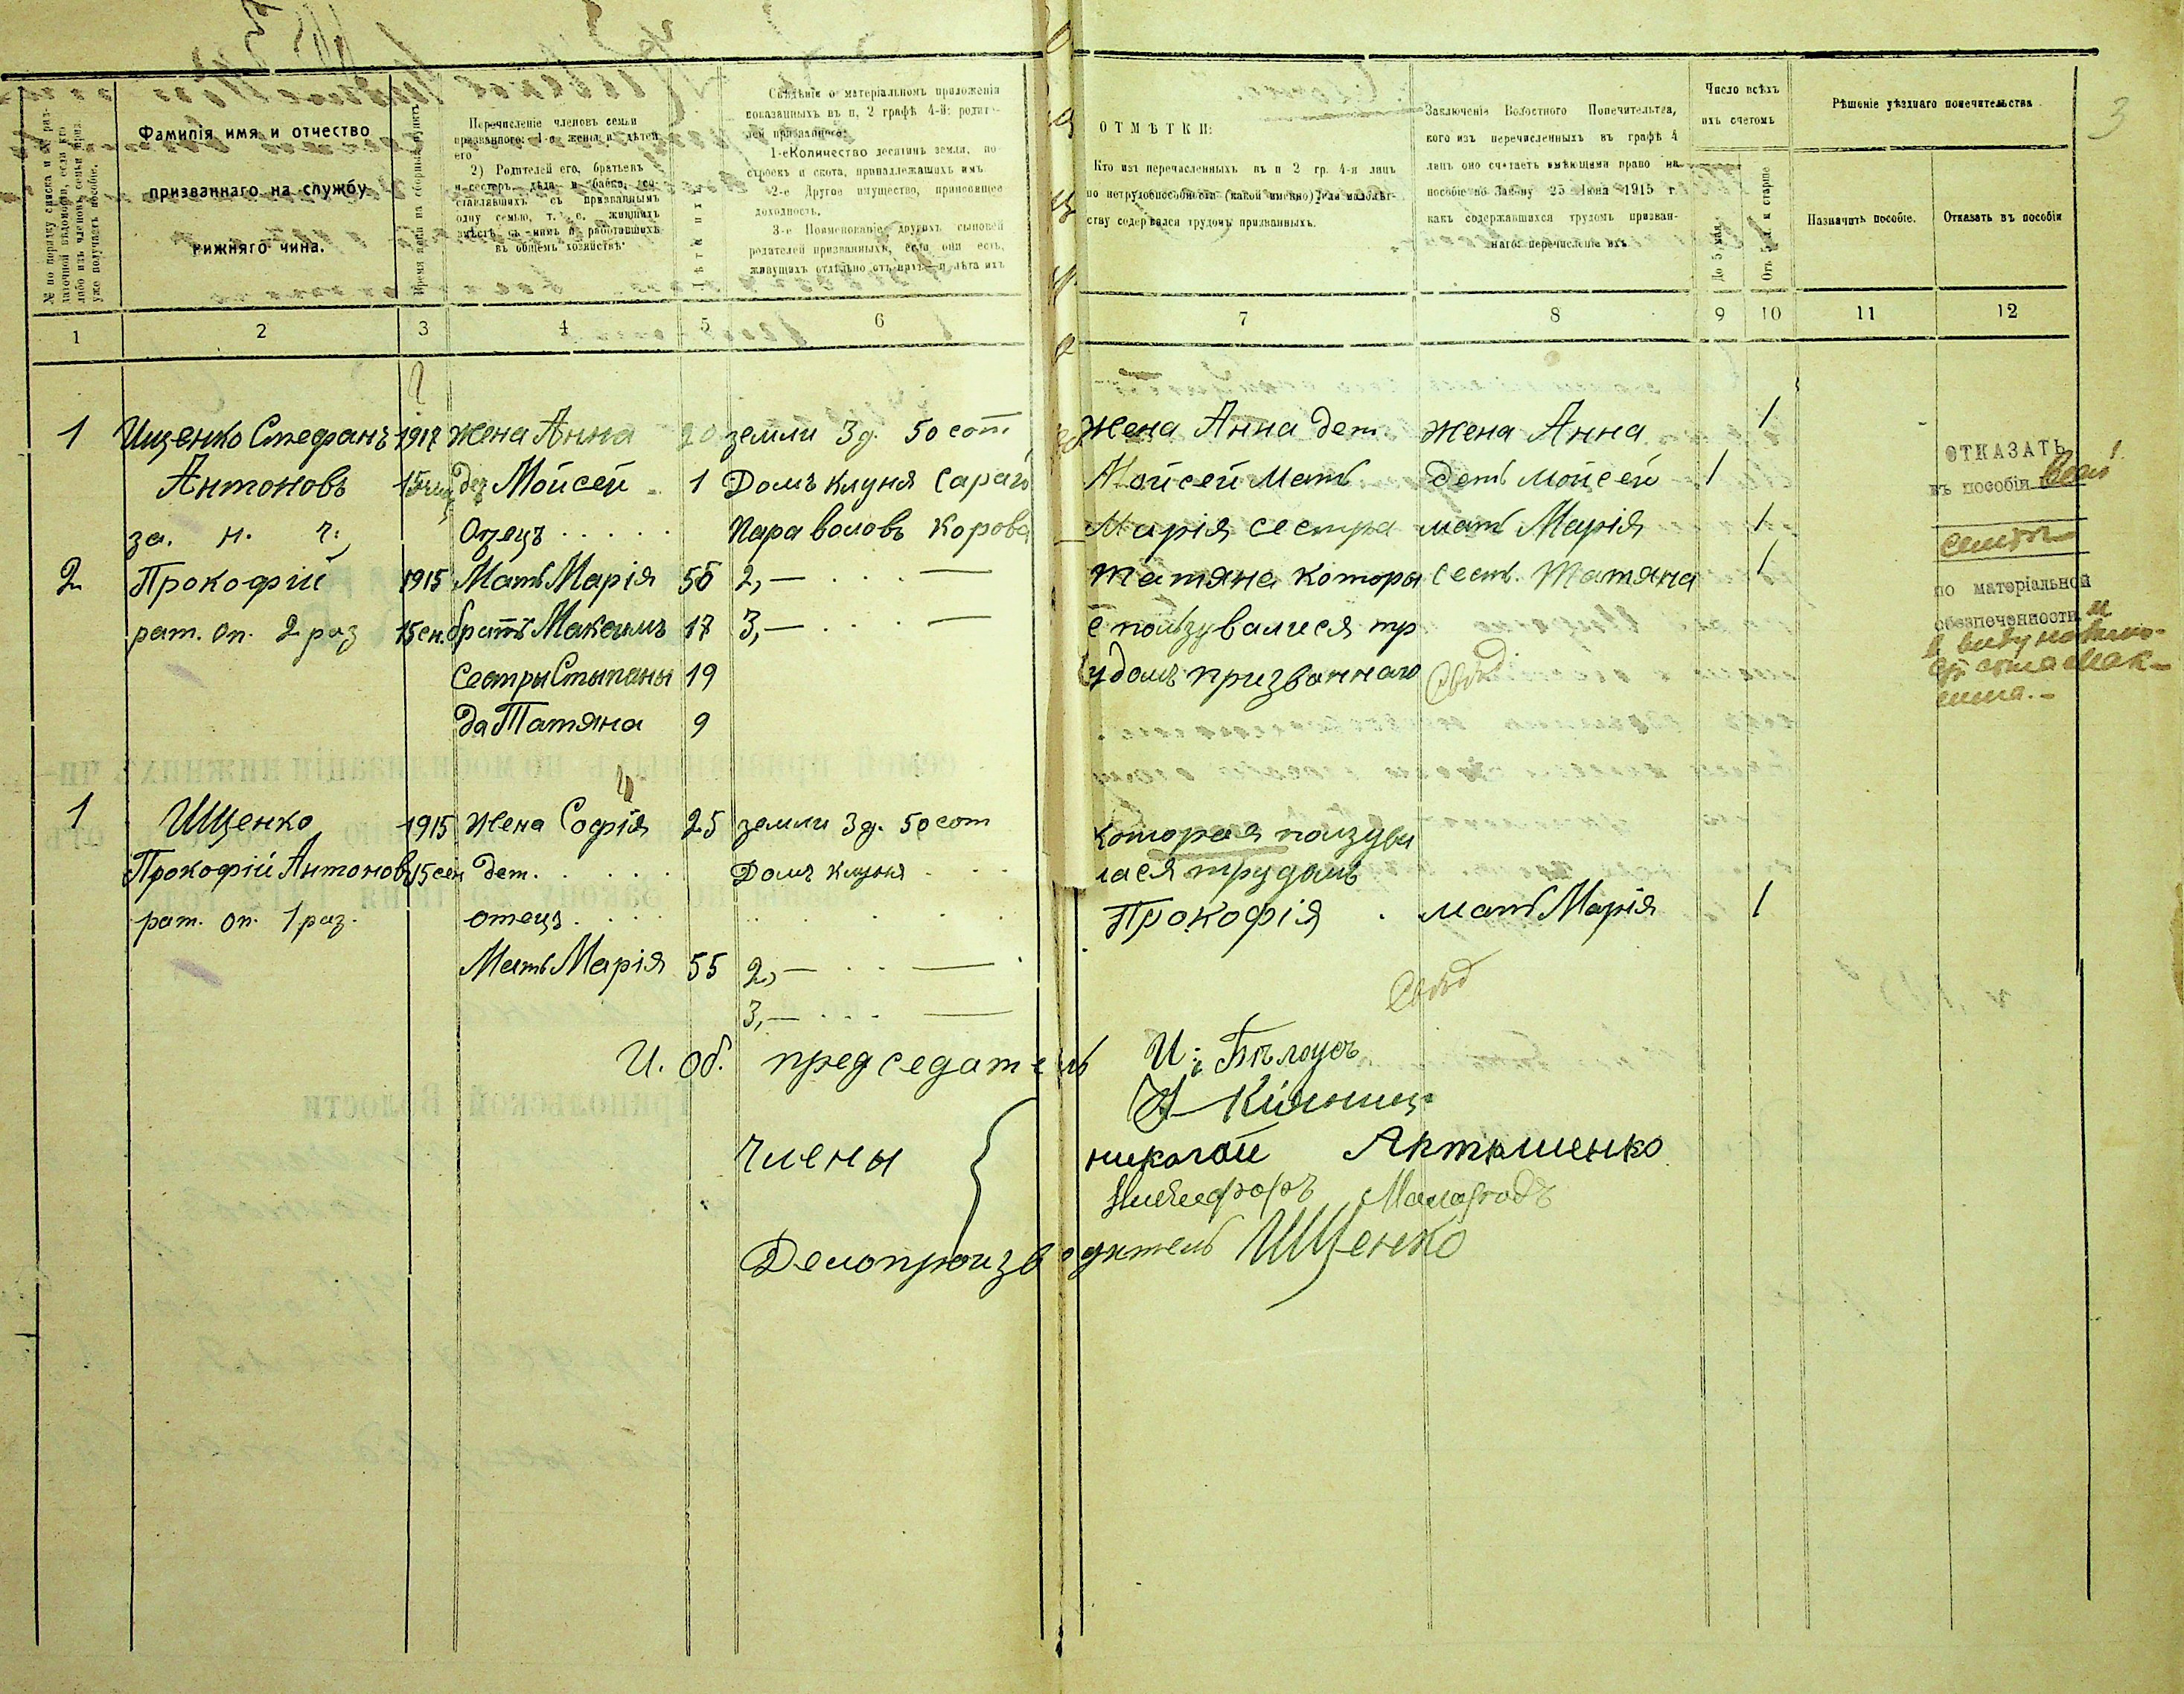 3
№ по порядку списка и
латочной вѣдомости, если кто
либо изъ членовъ семьи приз.
уже получаетъ пособіе.
Фамилія имя и отчество
призваннаго на службу
нижняго чина.
Время явки на сборный пунктъ
Перечисленіе членовъ семьи
призваннаго: 1-е жены и дѣтей
его
2) Родителей его, братьевъ
и сестеръ, дѣда и бабки, со-
ставлявшихъ съ призваннымъ
одну семью, т. е. жившихъ
вмѣстѣ съ нимъ и работавшихъ
въ общемъ хозяйствѣ
Лѣта ихъ
Свѣдѣнія о матеріальномъ приложенія
показанныхъ въ п, 2 графѣ 4-й: родите-
лей призваннаго:
1-е Количество десятинъ земли, по-
строекъ и скота, принадлежащихъ имъ
2-е Другое имущество, приносящее
доходность.
3-е Поименованіе другихъ сыновей
родителей призванныхъ, если они есть,
живущихъ отдѣльно отъ нихъ—и лѣта ихъ
ОТМѢТКИ:
Кто изъ перечисленныхъ въ п 2 гр. 4-я лицъ
по нетрудоспособности (какой именно) или малолѣт-
ству содержался трудомъ призванныхъ.
Заключеніе Волостного Попечительтва,
кого изъ перечисленныхъ въ графѣ 4
лицъ оно считаетъ имѣющими право на
пособіе по Закону 25 Іюня 1915 г.
какъ содержавшихся трудомъ призван-
наго: перечисленіе ихъ
Число всѣхъ
ихъ счетомъ
До 5 мал.
Отъ 5 л. и старше
Рѣшеніе уѣзднаго попечительства
Назначить пособіе.
Отказать въ пособіи
1 2 3 4 5 6 7 8 9 10 11 12
1 Ищенко Стефанъ 1917 жена Анна 20 земли 3 д. 50 сот. жена Анна дет. жена Анна 1
Антоновъ дет Мойсей 1 Домъ клуня сарай Мойсей Мать деть Мойсей 1
за. н. ч. Отецъ Пара воловъ корова Марія сестра мать Марія 1
2 Прокофій 1915 Мать Марія 55 2,— — Татяна которы сест. Татяна 1
рат. оп. 2 раз 15 сен. братъ Максимъ 17 3,— — е ползувалися тр
сестры Стыпаны 19 удомъ призваннаго
да Татяна 9
ОТКАЗАТЬ
въ пособіи всей
семьѣ
по матеріальной
обезпеченности и
1 Ищенко 1915 жена Софія 25 земли 3 д. 50 сот которая ползува
Прокофій Антоновъ 15 сен дет. Домъ клуня лася трудомъ
рат. оп. 1 раз. отецъ Прокофія мать Марія 1
Мать Марія 55 2,— —
3,— —
И. об. председатель И. Бѣлоусъ
Члены
николай Артюшенко
Никифоръ
Делопроизводитель Ищенко